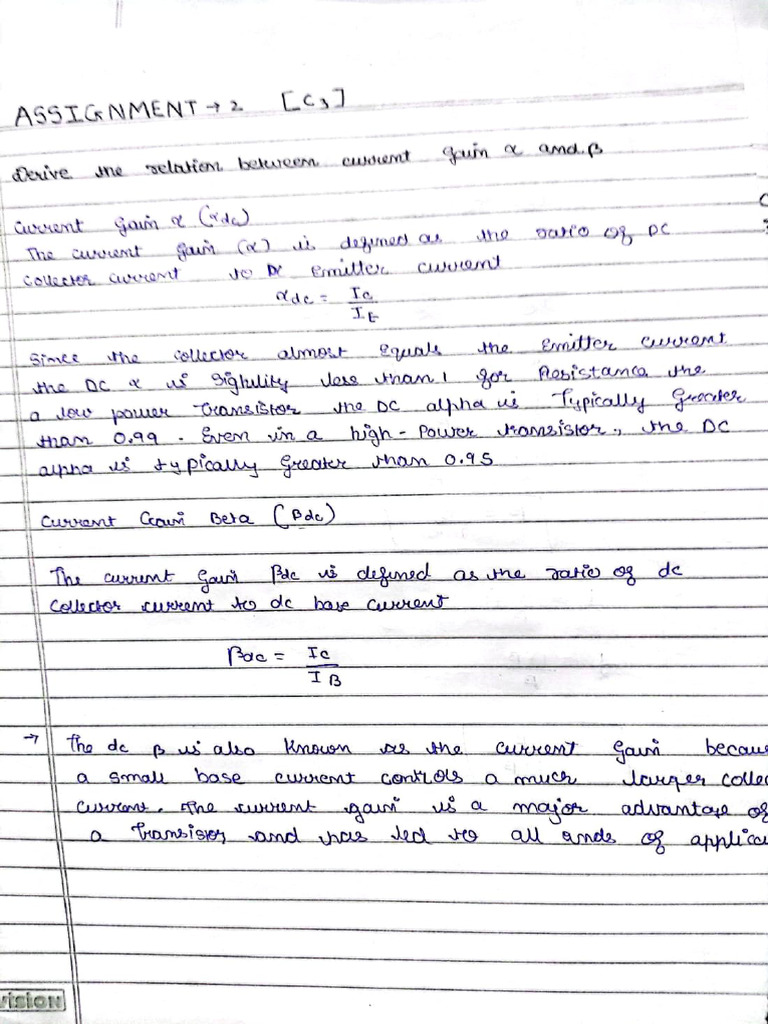 ASSIGNMENT → 2 [C3]
Derive the relation between current gain α and β
Current Gain α (αdc)
The current gain (α) is defined as the ratio of DC
Collector current to DC Emitter current
αdc = Ic
IE
Since the collector almost equals the Emitter current
the DC α is less than 1 for Resistance the
a low power Transistor the DC alpha is Typically Greater
than 0.99. Even in a high-Power transistor, the DC
alpha is typically Greater than 0.95
Current Gain Beta (βdc)
The current Gain βdc is defined as the ratio of dc
Collector current to dc base current
βdc = Ic
IB
→ The dc β is also known as the current Gain becaus
a small base current controls a much larger collec
current. The current gain is a major advantage of
a Transistor and has led to all of applica
vision